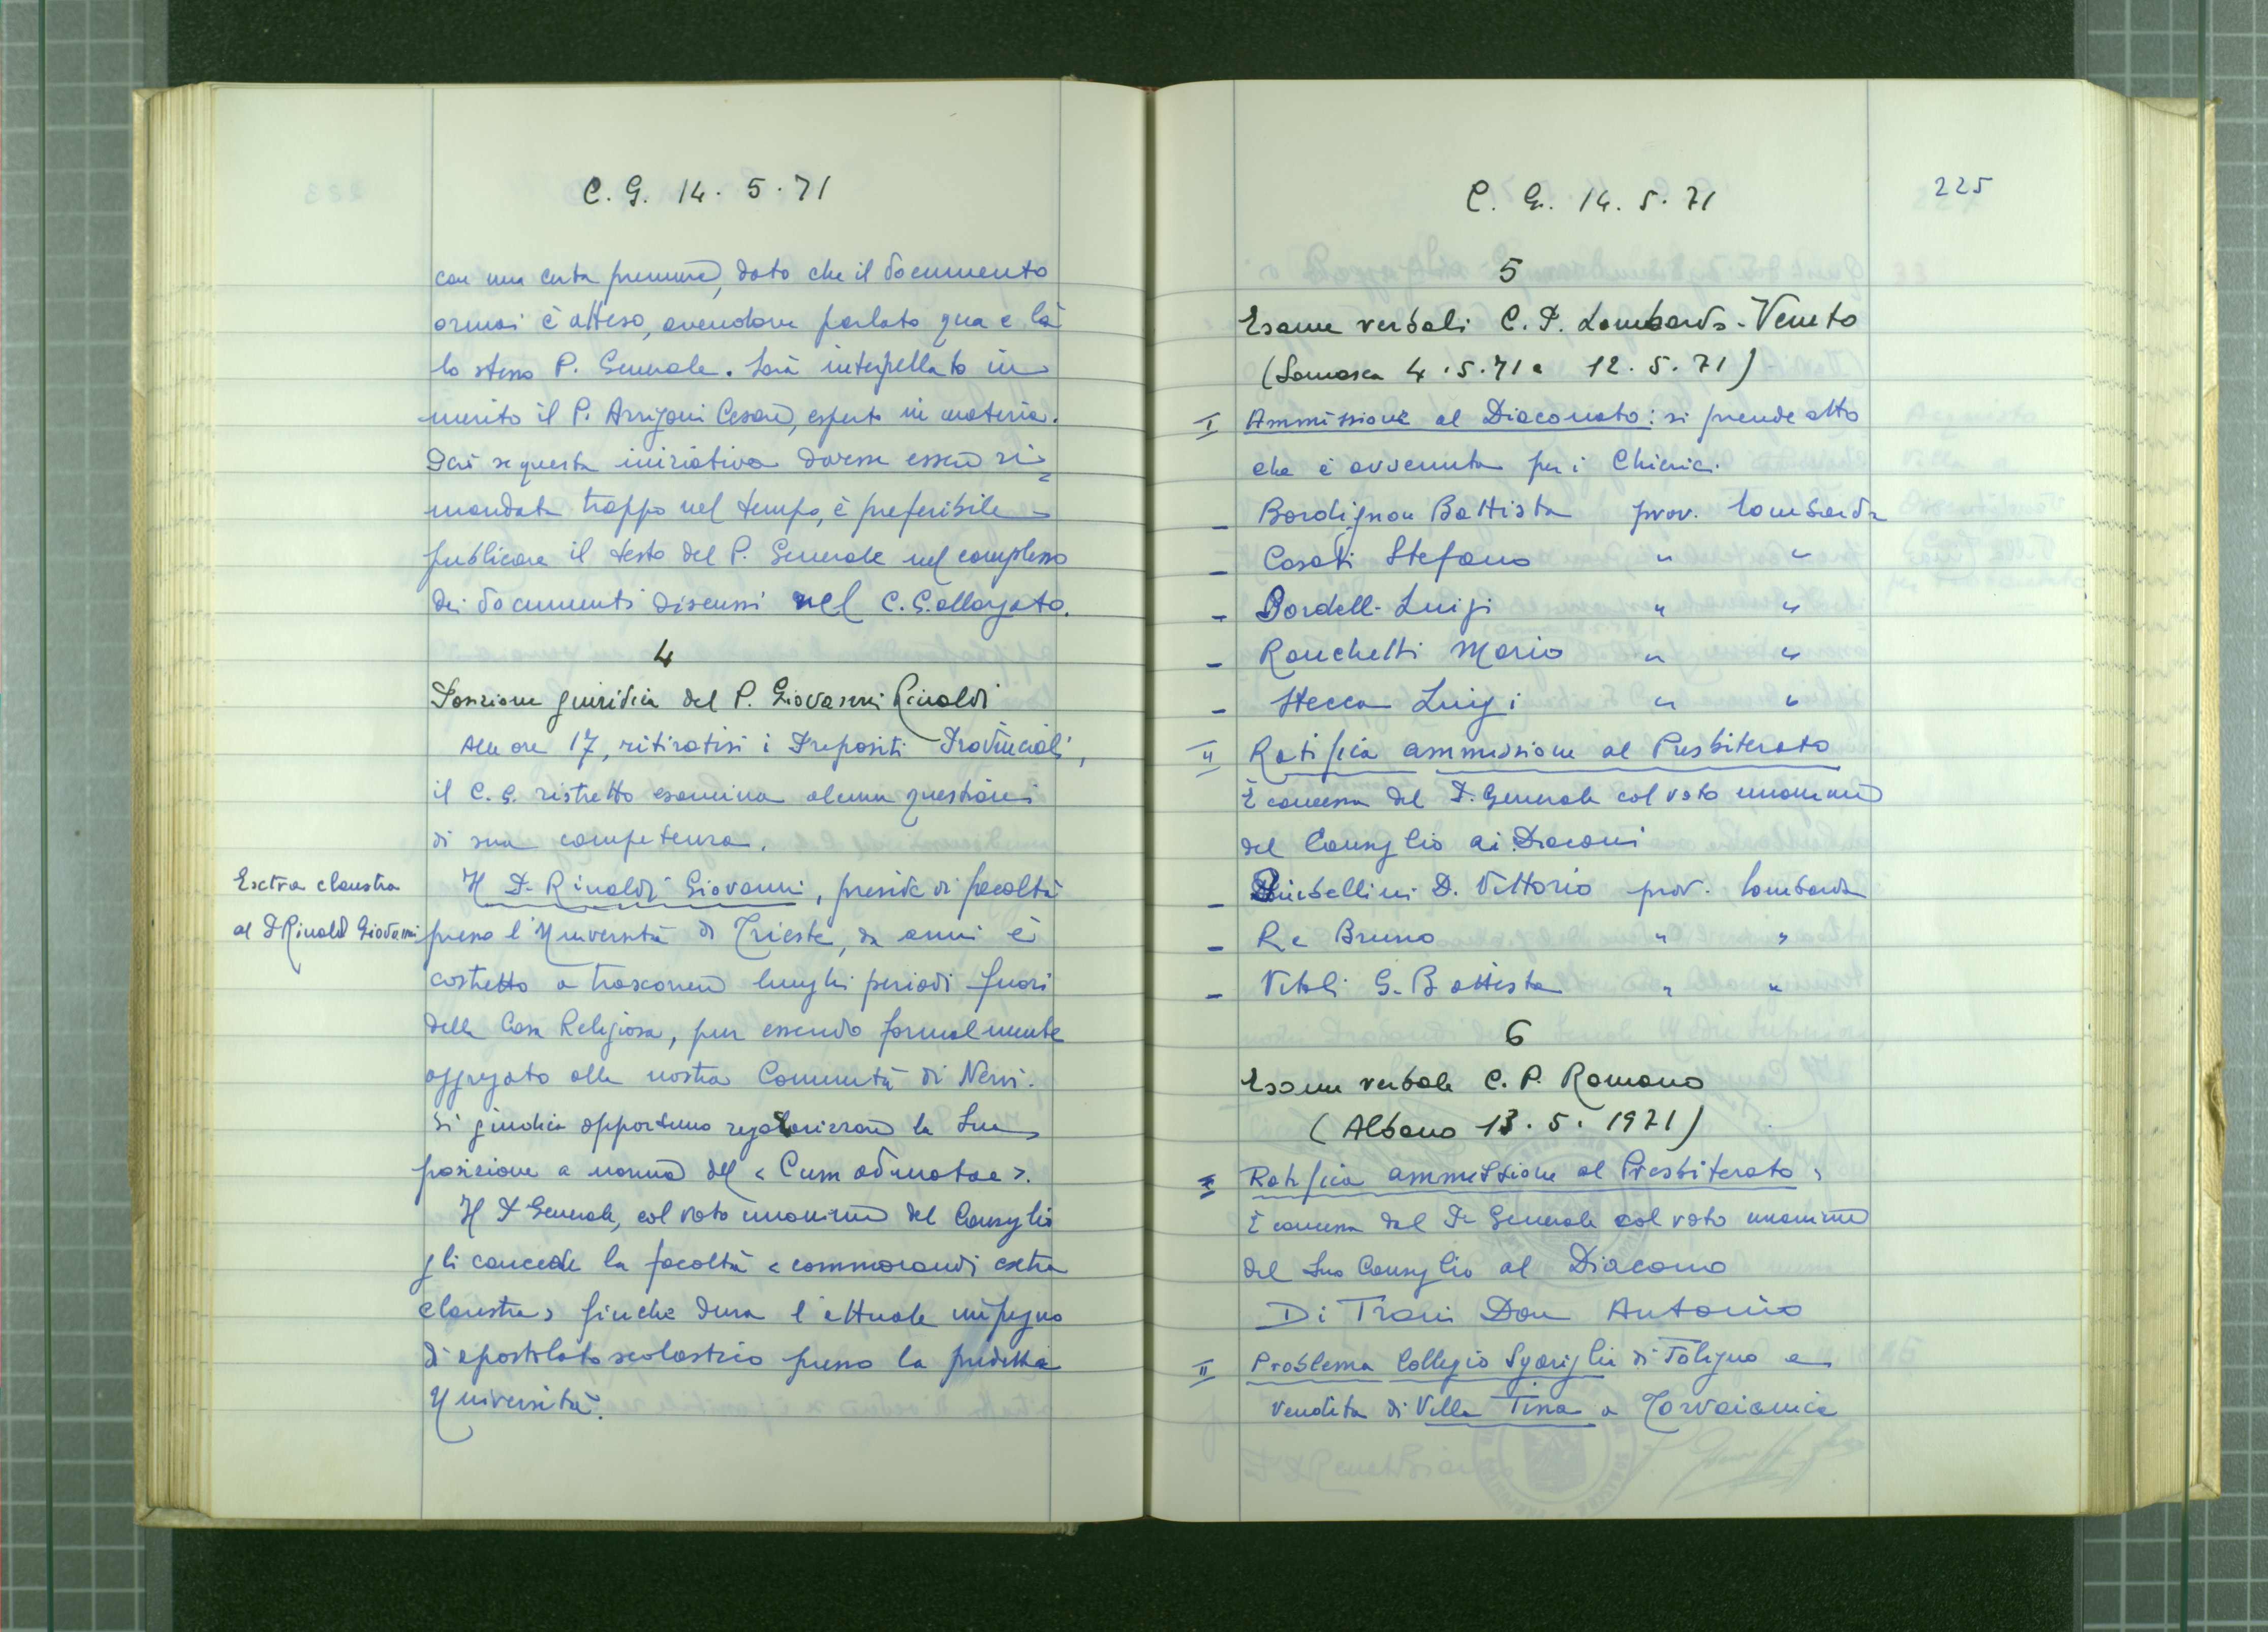 C. G. 14. 5. 71
con una certa premura, dato che il documento
ormai è atteso, avendone parlato qua e là
lo stesso P. Generale. Sarà interpellato in
merito il P. Arrigoni Cesare, esperto in materia.
Però se questa iniziativa dovesse essere ri=
mandata troppo nel tempo, è preferibile
pubblicare il testo del P. Generale nel complesso
dei documenti discussi nel C. G. allargato.
4
Posizione giuridica del P. Giovanni Rinaldi
Alle ore 17, ritiratisi i Prepositi Provinciali,
il C. G. ristretto esamina alcune questioni
di sua competenza.
Extra claustra
al P. Rinaldi Giovanni
Il P. Rinaldi Giovanni, preside di facoltà
presso l'Università di Trieste, da anni è
costretto a trascorrere lunghi periodi fuori
della Casa Religiosa, pur essendo formalmente
aggregato alla nostra Comunità di Nervi.
Si giudica opportuno regolarizzare la Sua
posizione a norma del "Cum admotae".
Il P. Generale, col voto unanime del Consiglio
gli concede la facoltà "commorandi extra
claustra" finchè dura l'attuale impegno
di apostolato scolastico presso la predetta
Università.
C. G. 14. 5. 71
225
5
Esame verbali C. P. Lombardo-Veneto
(Somasca 4. 5. 71 e 12. 5. 71)
I Ammissione al Diaconato: si prende atto
che è avvenuta per i Chierici.
- Bordignon Battista prov. lombarda
- Casati Stefano " "
- Bordelli Luigi " "
- Ronchetti Mario " "
- Stecca Luigi " "
II Ratifica ammissione al Presbiterato
È concessa dal P. Generale col voto unanime
del Consiglio ai Diaconi
- D. Vittorio prov. lombarda
- Re Bruno " "
- Vitali G. Battista " "
6
Esame verbale C. P. Romano
(Albano 13. 5. 1971)
I Ratifica ammissione al Presbiterato:
È concessa dal P. Generale col voto unanime
del Suo Consiglio al Diacono
Di Trani Don Antonio
II Problema Collegio Sgariglia di Foligno e
Vendita di Villa Tina a Torvaianica